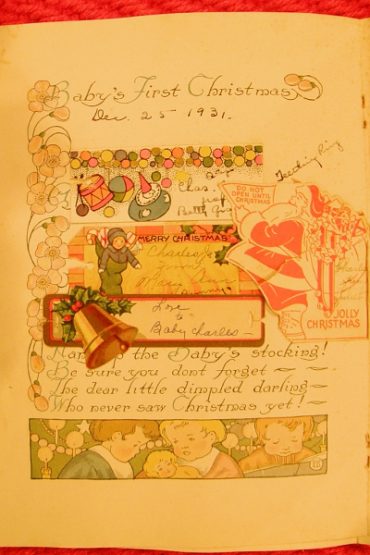 Baby's First Christmas
Dec. 25 1931.
Teething Ring
Chas.
from
Betty
DO NOT
OPEN UNTIL
CHRISTMAS
MERRY CHRISTMAS
Charles
from
Marie
Love
to
Baby Charles
JOLLY
CHRISTMAS
the Baby's stocking!
Be sure you dont forget
The dear little dimpled darling
Who never saw Christmas yet!